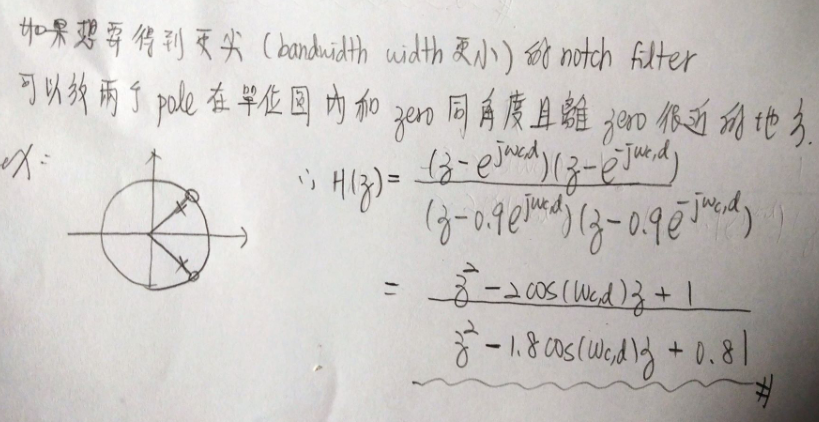 如果想要得到更尖 (bandwidth width 更小) 的 notch filter
可以放兩個 pole 在單位圓內和 zero 同角度且離 zero 很近的地方.
ex:
∴ H(z) = (z - e^{jω_{c,d}})(z - e^{-jω_{c,d}}) / (z - 0.9e^{jω_{c,d}})(z - 0.9e^{-jω_{c,d}})
= z² - 2cos(ω_{c,d})z + 1 / z² - 1.8cos(ω_{c,d})z + 0.81 #